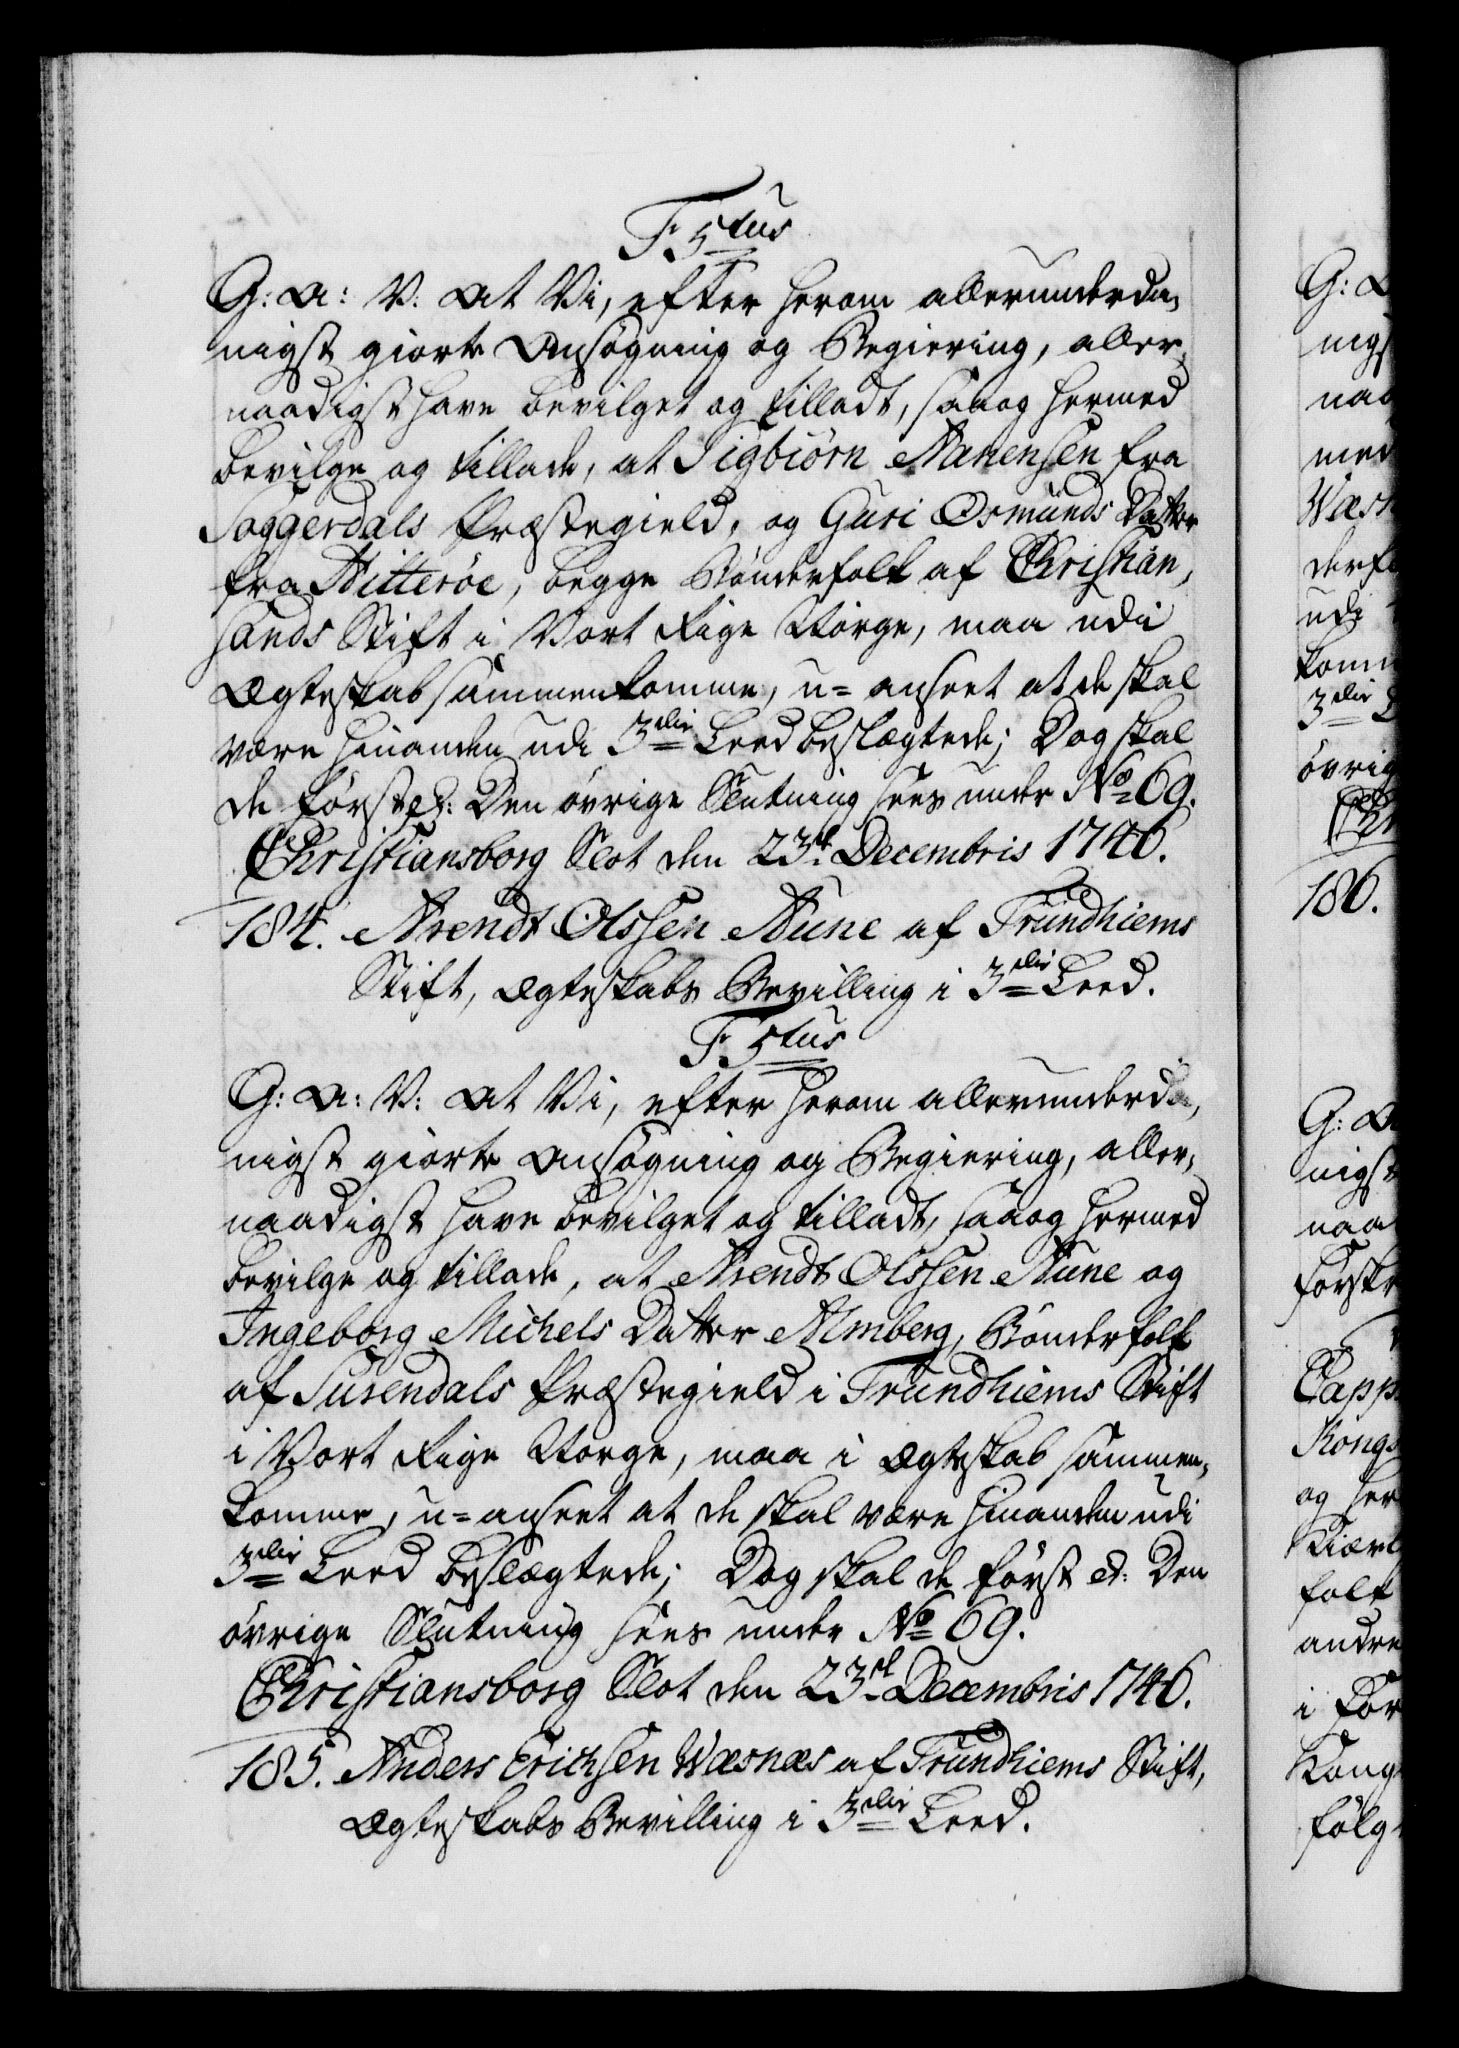 F. 5tus
G: A: V: At Vi, efter herom allerunderda,
nigst giorte Ansøgning og Begiering, aller,
naadigst have bevilget og tilladt, saa og hermed
bevilge og tillade, at Sigbiörn Nanensen fra
Soggerdals Præstegield, og Guri Osmunds Datter
fra Hitteröe, begge Bønderfolk af Christian,
sands Stift i Vort Rige Norge, maa udi
Ægteskab sammenkomme, u=anseet at de skal
være hinanden udi 3die Leed beslægtede; Dog skal
de först p: Den övrige Slutning sees under No 69.
Christiansborg Slot den 23d Decembris 1746.
184. Arendt Olssen Aune af Trundhiems
Stift, Ægteskabs Bevilling i 3die Leed.
F. 5tus
G: A: V: At Vi, efter herom allerunderda,
nigst giorte Ansøgning og Begiering, aller,
naadigst have bevilget og tilladt, saa og hermed
bevilge og tillade, at Arendt Olssen Aune og
Ingeborg Michels Datter Almberg, Bønderfolk
af Surendals Præstegield i Trundhiems Stift
i Vort Rige Norge, maa i Ægteskab sammen,
komme, u=anseet at de skal være hinanden udi
3die Leed beslægtede; Dog skal de först et: Den
övrige Slutning sees under No 69.
Christiansborg Slot den 23d Decembris 1746.
185. Anders Erichsen Wæsnæs af Trundhiems Stift,
Ægteskabs Bevilling i 3die Leed.
G: A
nigs
naa
med
Wæsn
derfo
udi
komm
3die L
övrig
Chr
186.
G: A
nigst
naa
Forsk
Capp
Kongs
og her
Kiær
folk
andre
i For
Kong
fölg